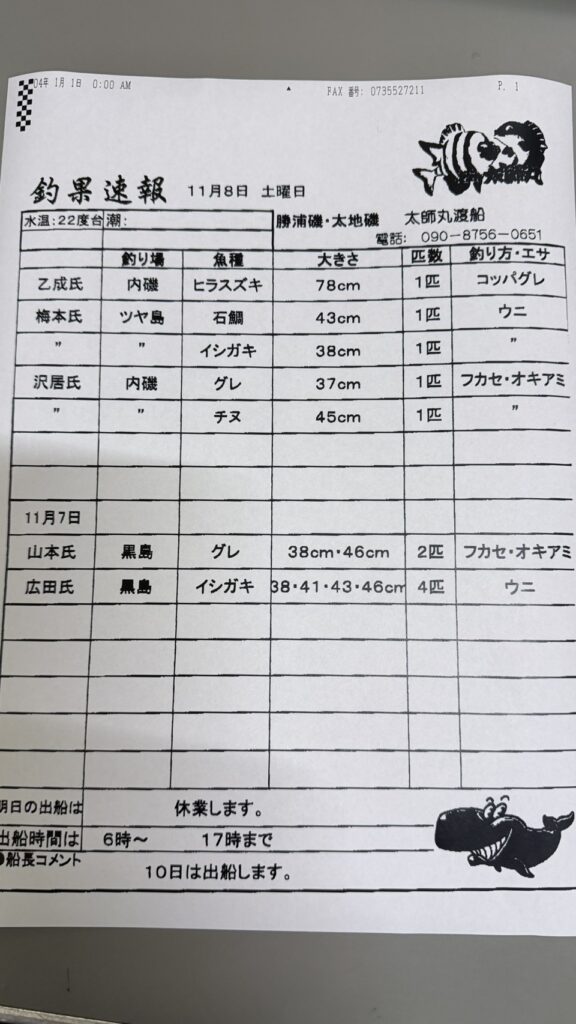 04年 1月 1日 0:00 AM FAX 番号: 0735527211 P. 1
釣果速報 11月8日 土曜日
水温:22度台 潮: 勝浦磯・太地磯 太師丸渡船
電話: 090-8756-0651
釣り場 魚種 大きさ 匹数 釣り方・エサ
乙成氏 内磯 ヒラスズキ 78cm 1匹 コッパグレ
梅本氏 ツヤ島 石鯛 43cm 1匹 ウニ
〃 〃 イシガキ 38cm 1匹 〃
沢居氏 内磯 グレ 37cm 1匹 フカセ・オキアミ
〃 〃 チヌ 45cm 1匹 〃
11月7日
山本氏 黒島 グレ 38cm・46cm 2匹 フカセ・オキアミ
広田氏 黒島 イシガキ 38・41・43・46cm 4匹 ウニ
明日の出船は 休業します。
出船時間は 6時～ 17時まで
●船長コメント
10日は出船します。